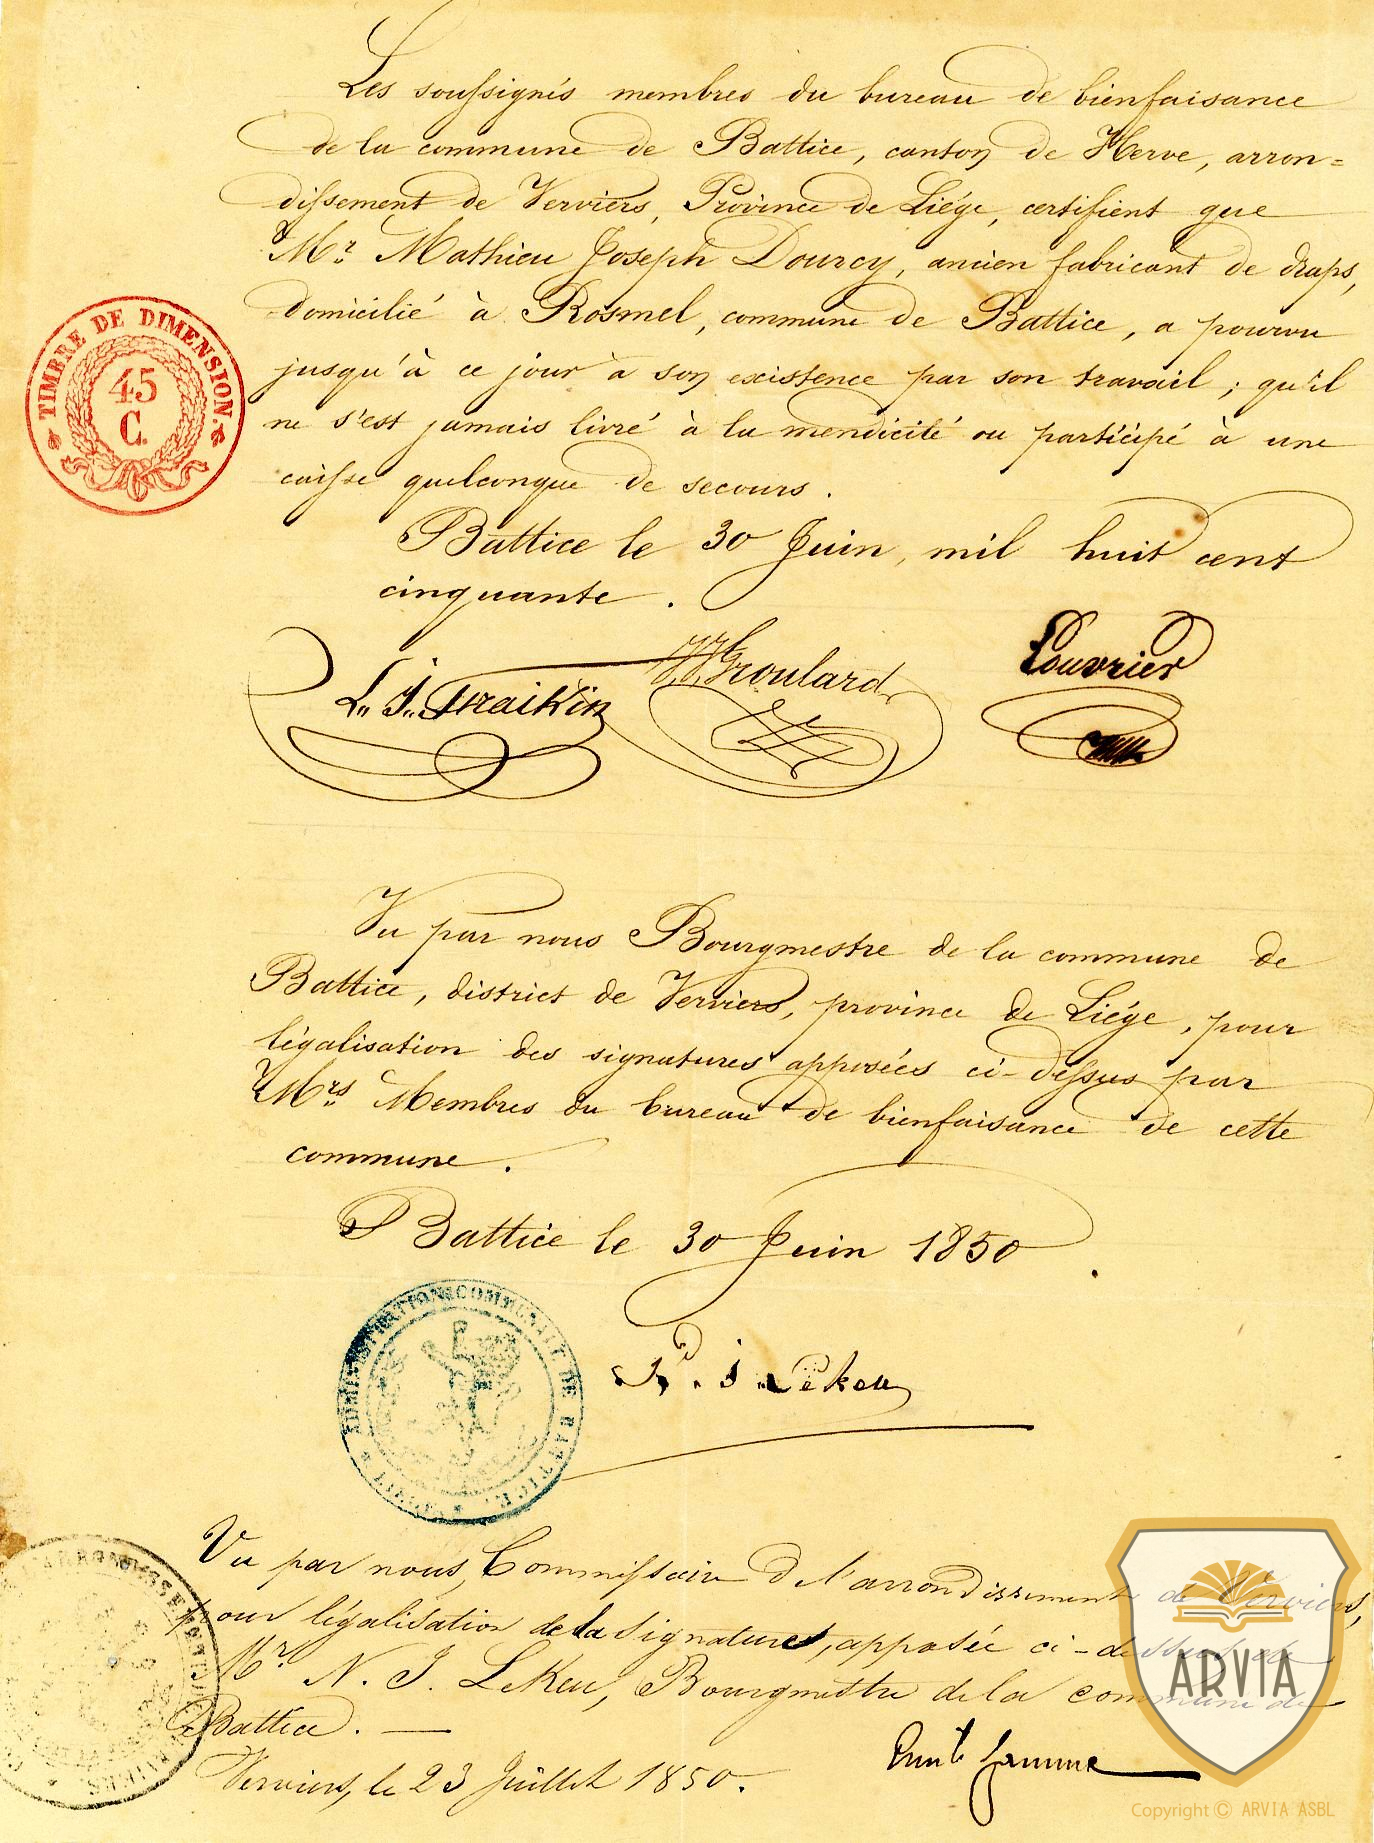 Les soussignés membres du bureau de bienfaisance
de la commune de Battice, canton de Herve, arron=
dissement de Verviers, Province de Liége, certifient que
Mr. Mathieu Joseph Dourcy, ancien fabricant de draps,
domicilié à Rosmel, commune de Battice, a pourvu
jusqu'à ce jour à son existence par son travail ; qu'il
ne s'est jamais livré à la mendicité ou participé à une
caisse quelconque de secours.
Battice le 30 Juin, mil huit cent
cinquante.
TIMBRE DE DIMENSION.
45
C.
L. J. Fraikin
Groulard
Louvrier
Vu par nous Bourgmestre de la commune de
Battice, district de Verviers, province de Liége, pour
légalisation des signatures apposées ci-dessus par
Mrs. Membres du bureau de bienfaisance de cette
commune.
Battice le 30 Juin 1850.
ADMINISTRATION COMMUNALE DE BATTICE
N. J. Lekeu
Vu par nous, Commissaire de l'arrondissement de Verviers,
pour légalisation de la signature, apposée ci-dessus de
Mr. N. J. LeKeu, Bourgmestre de la commune de
Battice. —
Verviers, le 23 Juillet 1850.
ARVIA
Copyright © ARVIA ASBL